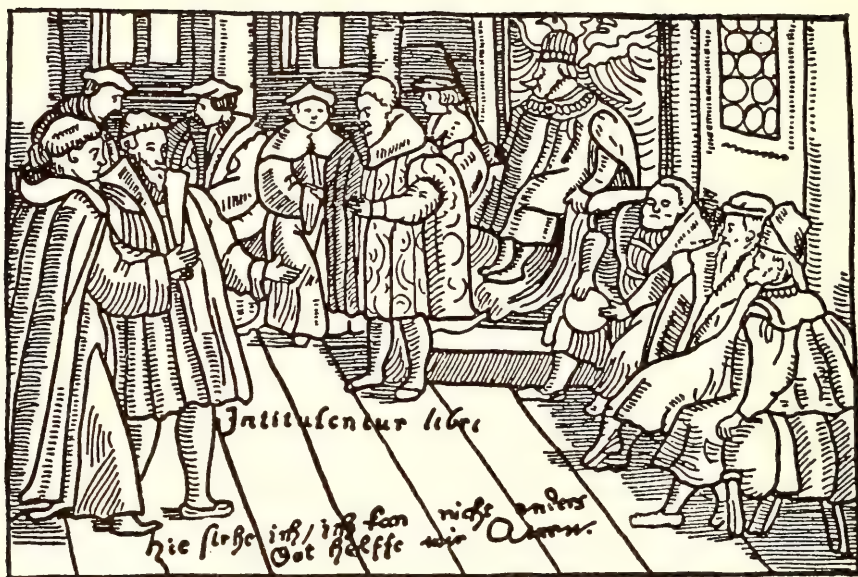 Intitulentur libri
hie stehe ich / ich kan nicht anders
Got helffe mir Amen.